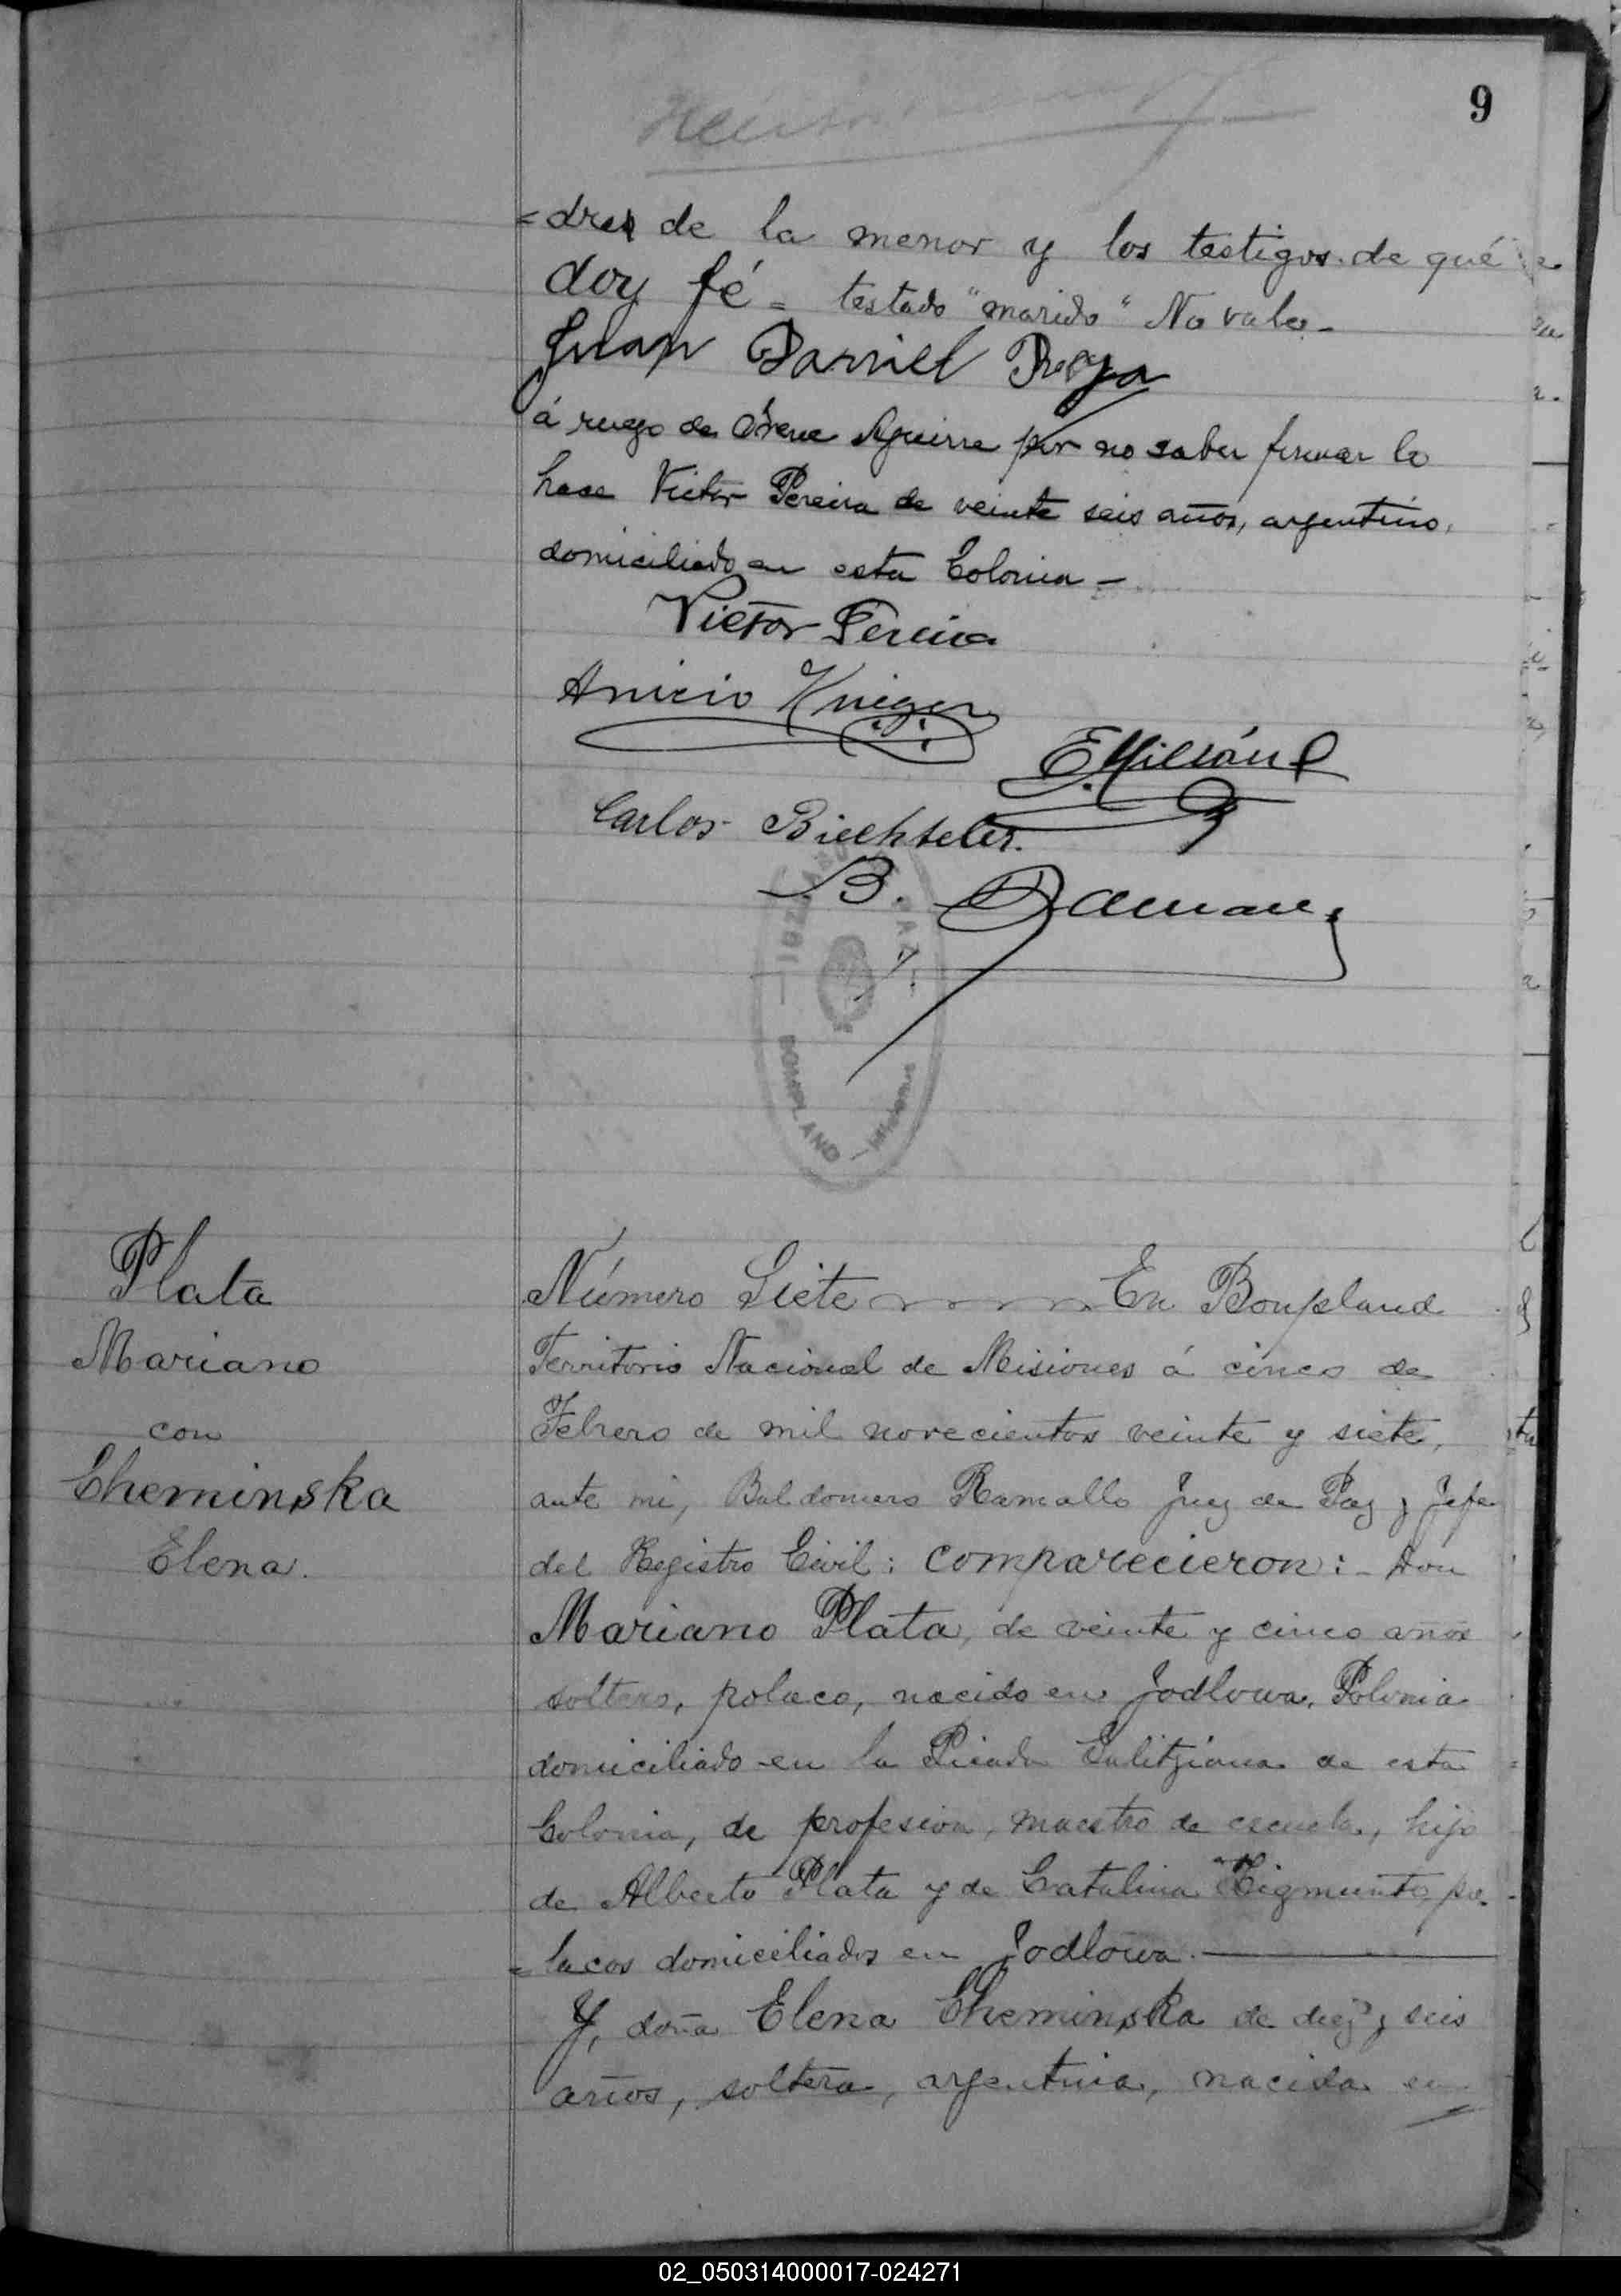 9
=dres de la menor y los testigos de qué
doy fé = testado "marido" No vale-
Juan Daniel
á ruego de Irene Aguirre por no saber firmar lo
hace Victor Pereira de veinte seis años, argentino,
domiciliado en esta Colonia -
Victor Pereira
Anicio
Carlos
B.
BONPLAND - Misiones
Plata
Mariano
con
Cheminska
Elena.
Número Siete En Bonpland
Territorio Nacional de Misiones á cinco de
Febrero de mil novecientos veinte y siete,
ante mi, Baldomero Ramallo Juez de Paz y Jefe
del Registro Civil: comparecieron: - Don
Mariano Plata, de veinte y cinco años
soltero, polaco, nacido en Jodlowa, Polonia
domiciliado en la Picada de esta
Colonia, de profesion, maestro de escuela, hijo
de Alberto Plata y de Catalina po-
=lacos domiciliados en Jodlowa.
Y, doña Elena Cheminska de diez y seis
años, soltera, argentina, nacida en
02_050314000017-024271